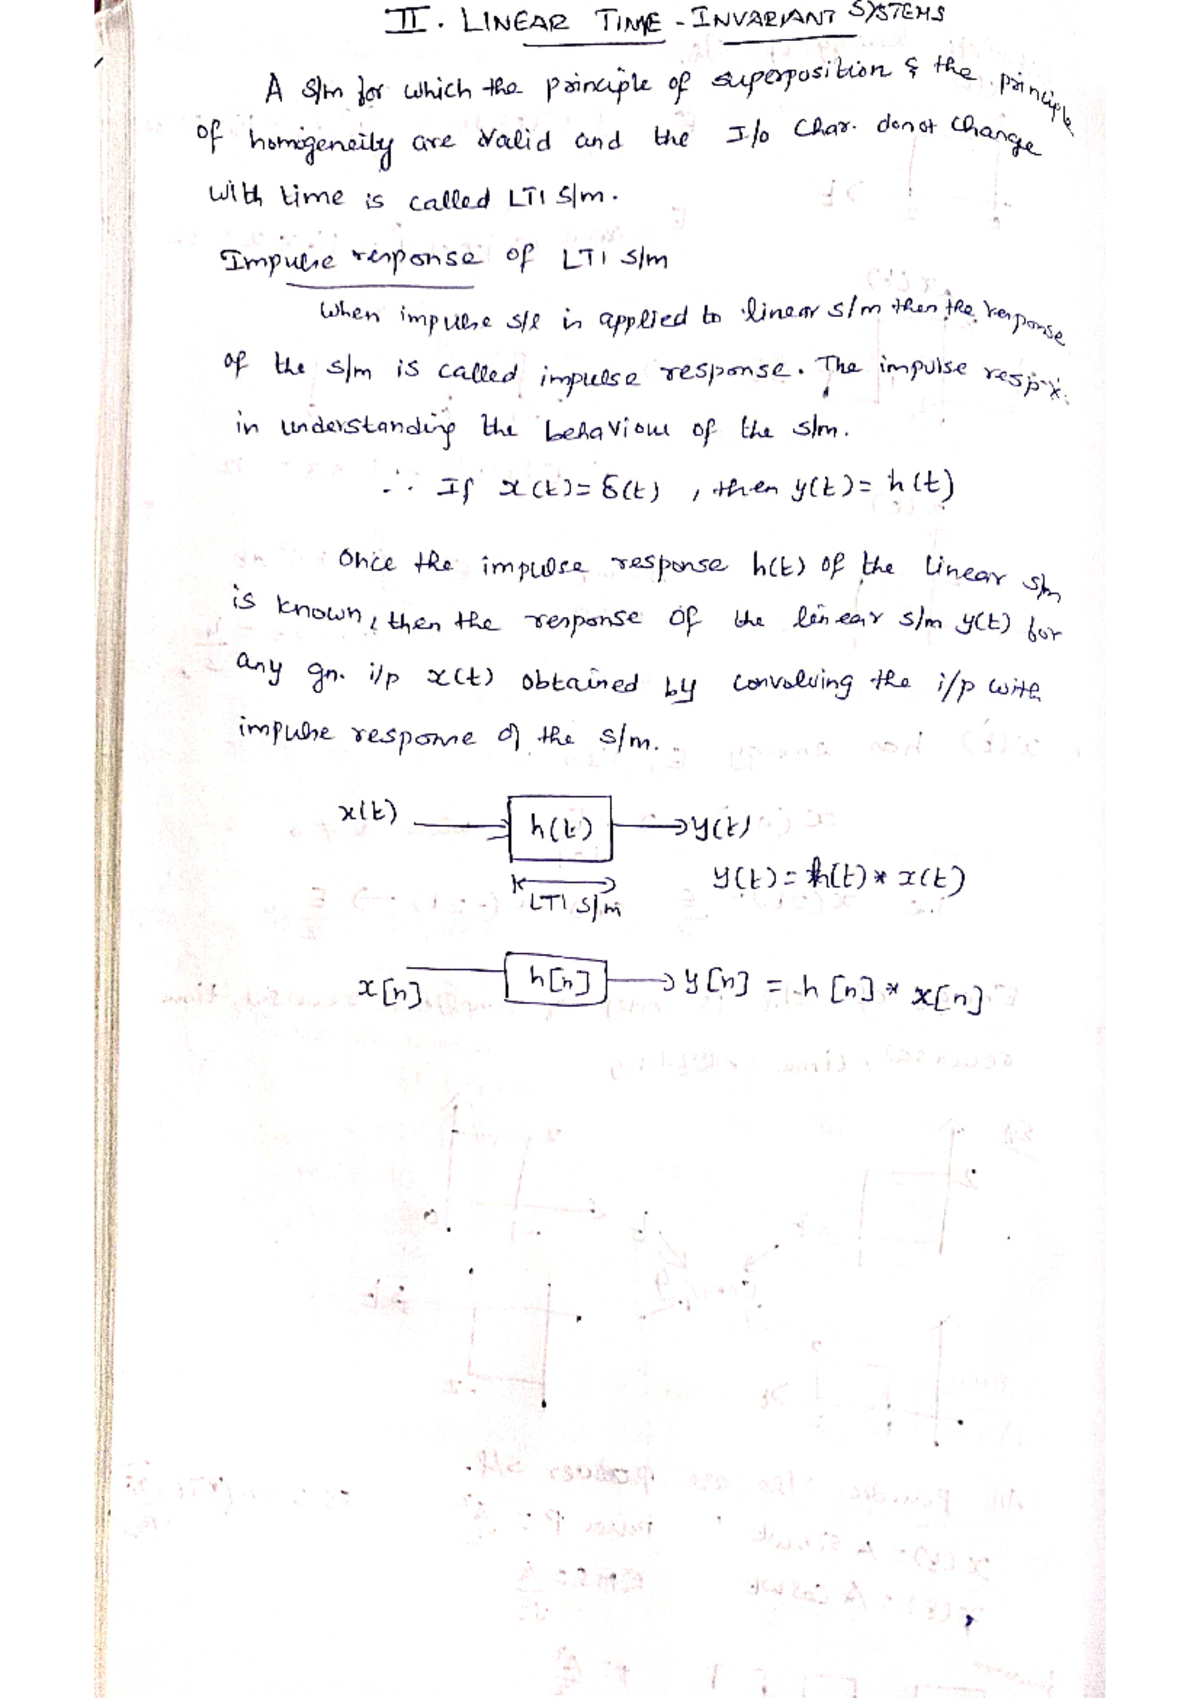 II. LINEAR TIME-INVARIANT SYSTEMS
A s/m for which the principle of superposition & the principle
of homogeneity are valid and the I/o char. donot change
with time is called LTI s/m.
Impulse response of LTI s/m
When impulse s/l is applied to linear s/m then the response
of the s/m is called impulse response. The impulse
in understanding the behaviour of the s/m.
∴ If x(t)=δ(t) , then y(t)= h(t)
Once the impulse response h(t) of the linear s/m
is known, then the response of the linear s/m y(t) for
any gn. i/p x(t) obtained by convolving the i/p with
impulse response of the s/m.
x(t) h(t) y(t)
y(t)= h(t) * x(t)
LTI s/m
x[n] h[n] y[n] = h[n] * x[n]